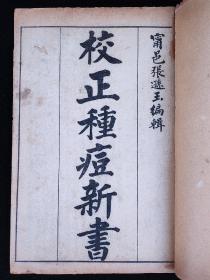 甯邑張遜玉編輯
校正種痘新書